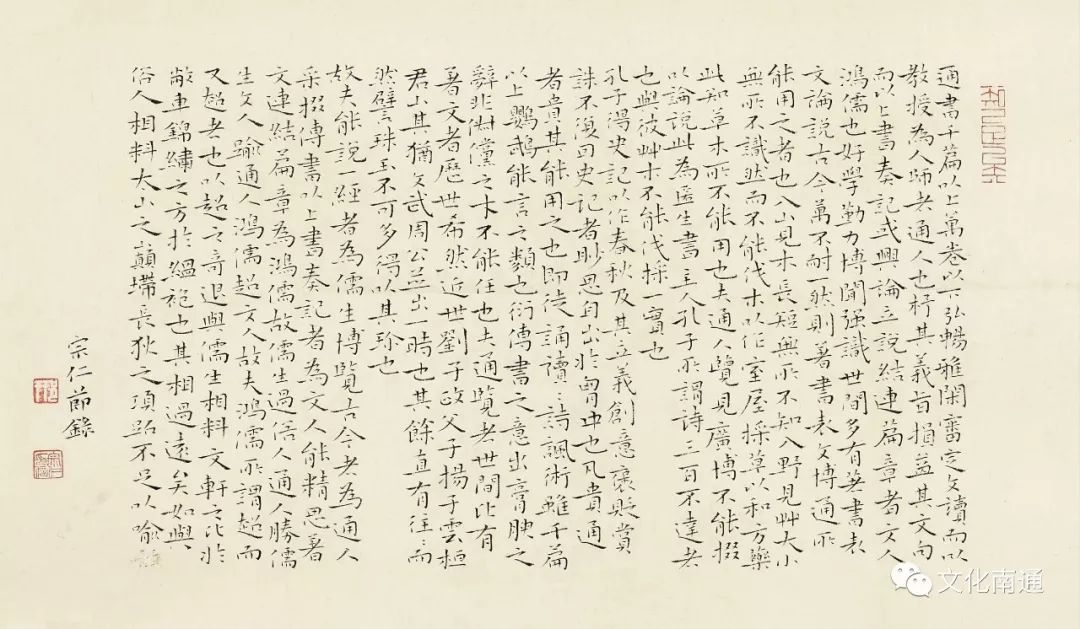 通書千篇以上萬卷以下弘暢雅閑審定文讀而以
教授為人師者通人也杼其義旨損益其文句
而以上書奏記或興論立說結連篇章者文人
鴻儒也好學勤力博聞强識世間多有著書表
文論說古今萬不耐一然則著書表文博通所
能用之者也入山見木長短無所不知入野見艸大小
無所不識然而不能伐木以作室屋採草以和方藥
此知草木所不能用也夫通人覽見廣博不能掇
以論說此為匿生書主人孔子所謂詩三百不達者
也與彼艸木不能伐採一實也
孔子得史記以作春秋及其立義創意褒貶賞
誅不復因史記者眇思自出於胷中也凡貴通
者貴其能用之也即徒誦讀讀詩諷術雖千篇
以上鸚鵡能言之類也衍傳書之意出膏腴之
辭非俶儻之才不能任也夫通覽者世間比有
著文者歷世希然近世劉子政父子揚子雲桓
君山其猶文武周公並出一時也其餘直有往往而
然譬珠玉不可多得以其珍也
故夫能說一經者為儒生博覽古今者為通人
采掇傳書以上書奏記者為文人能精思著
文連結篇章為鴻儒故儒生過俗人通人勝儒
生文人踰通人鴻儒超文人故夫鴻儒所謂超而
又超者也以超之奇退與儒生相料文軒之比於
敝車錦繡之方於縕袍也其相過遠矣如與
俗人相料太山之巔墆長狄之項跖不足以喻
宗仁節錄
文化南通